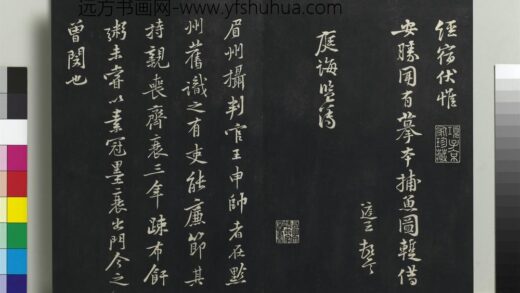 远方书画网-www.yfshuhua.com
經宿伏惟
安勝聞有摹本捕魚圖輙借
庭誨監簿
眉州攝判官王申師者在黔
州舊識之有吏能廉節其
持親喪齊衰三年疎布飦
粥未甞以素冠墨衰出門今之
曾閔也
項子京家珍藏